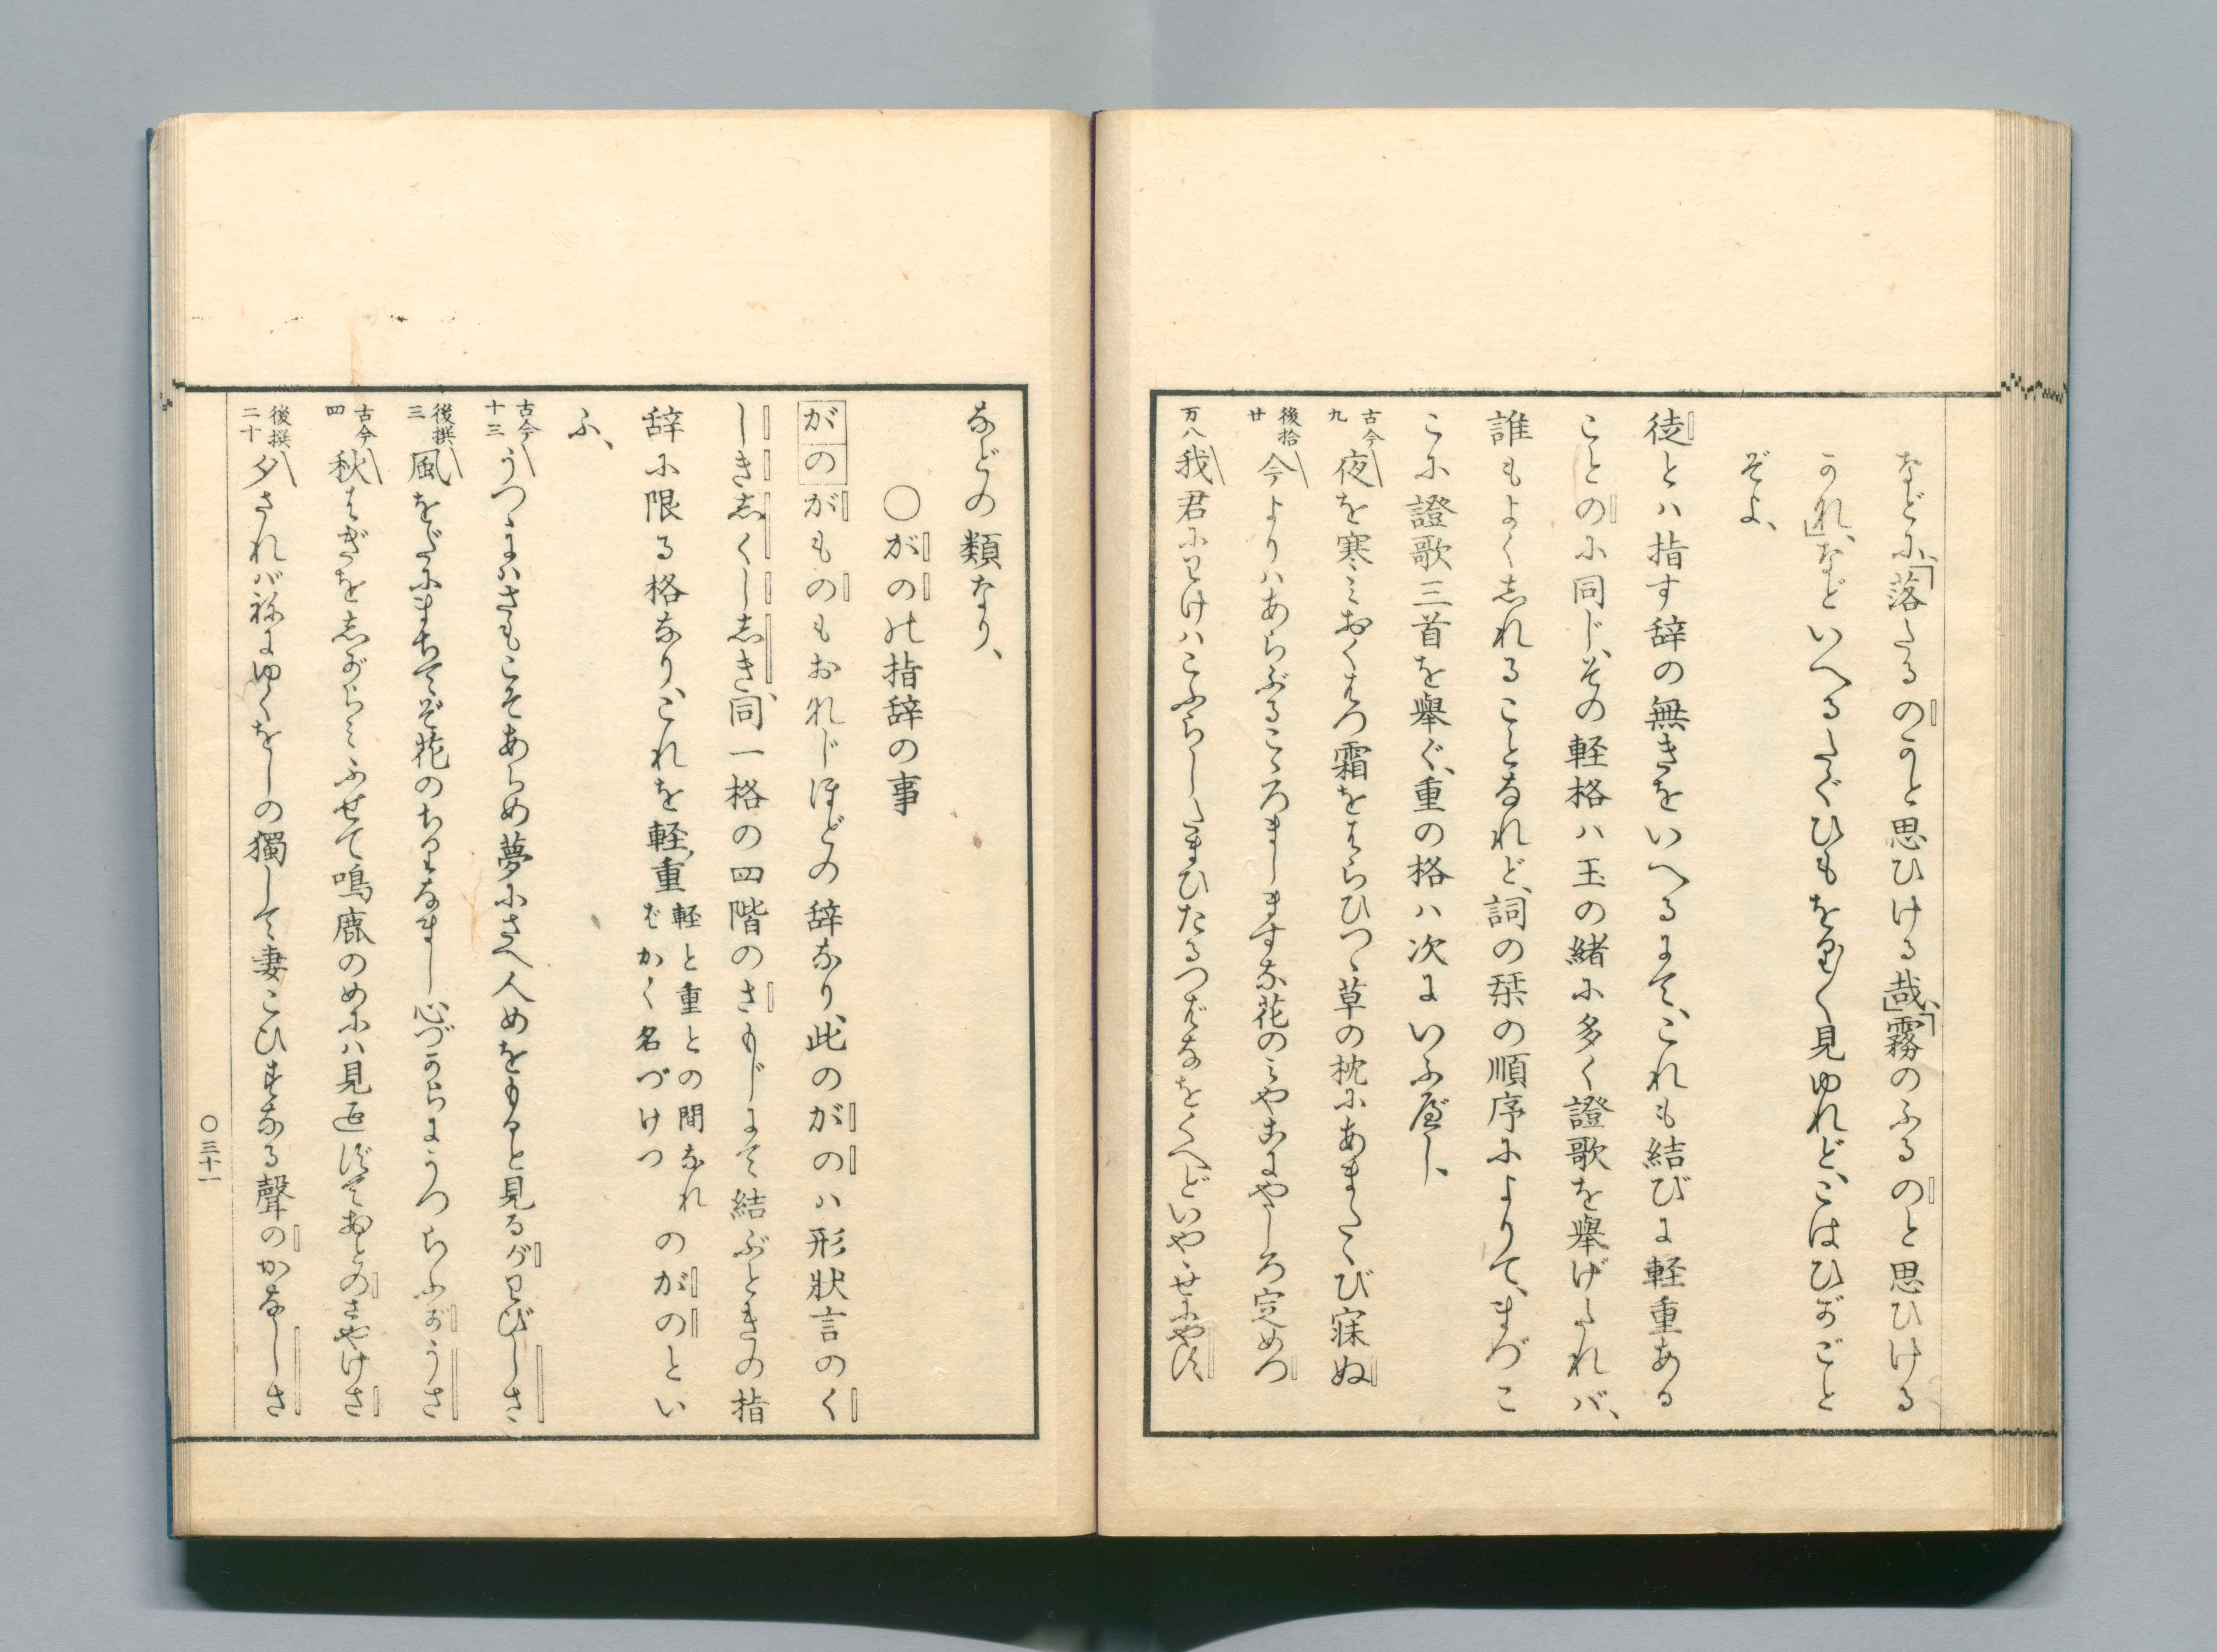 などに、「落たるのかと思ひける哉、」「霧のふるのと思ひける
かれ、」などいへるたぐひもをり〱見ゆれど、こはひがごと
ぞよ、
徒とハ指す辞の無きをいへるにて、これも結びに軽重ある
ことのに同じ、その軽格ハ玉の緒に多く證歌を舉げたれバ、
誰もよくしれることなれど、詞の栞の順序によりて、まづこ
こに證歌三首を舉ぐ、重の格ハ次にいふべし、
古今九 夜を寒みおくはつ霜をはらひつゝ草の枕にあまたゝび寐ぬ
後拾廿 今よりハあらぶるこゝろまします な花のみやこにやしろ定めつ
万八 我君にわけハこふらしたまひたるつばなをくへどいややせにやす
などの類なり、
〇がのの指辞の事
がの がものもおなじほどの辞なり、此のがのハ形狀言のく
しきしくししき、同一格の四階のさもじにて結ぶときの指
辞に限る格なり、これを軽重 軽と重との間なれ ばかく名づけつ のがのとい
ふ、
古今十三 うつゝにハさもこそあらめ夢にさへ人めをもると見るがわびしさ
後撰三 風をだにまちてぞ花のちりなまし心づからにうつろふがうさ
古今四 秋はぎをしがらみふせて鳴鹿のめにハ見えずておとのさやけさ
後撰二十 夕されバ祢にゆくをしの獨して妻こひすなる聲のかなしさ
〇三十一